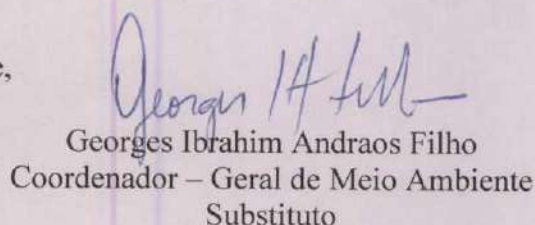 e,
Georges Ibrahim Andraos Filho
Coordenador – Geral de Meio Ambiente
Substituto